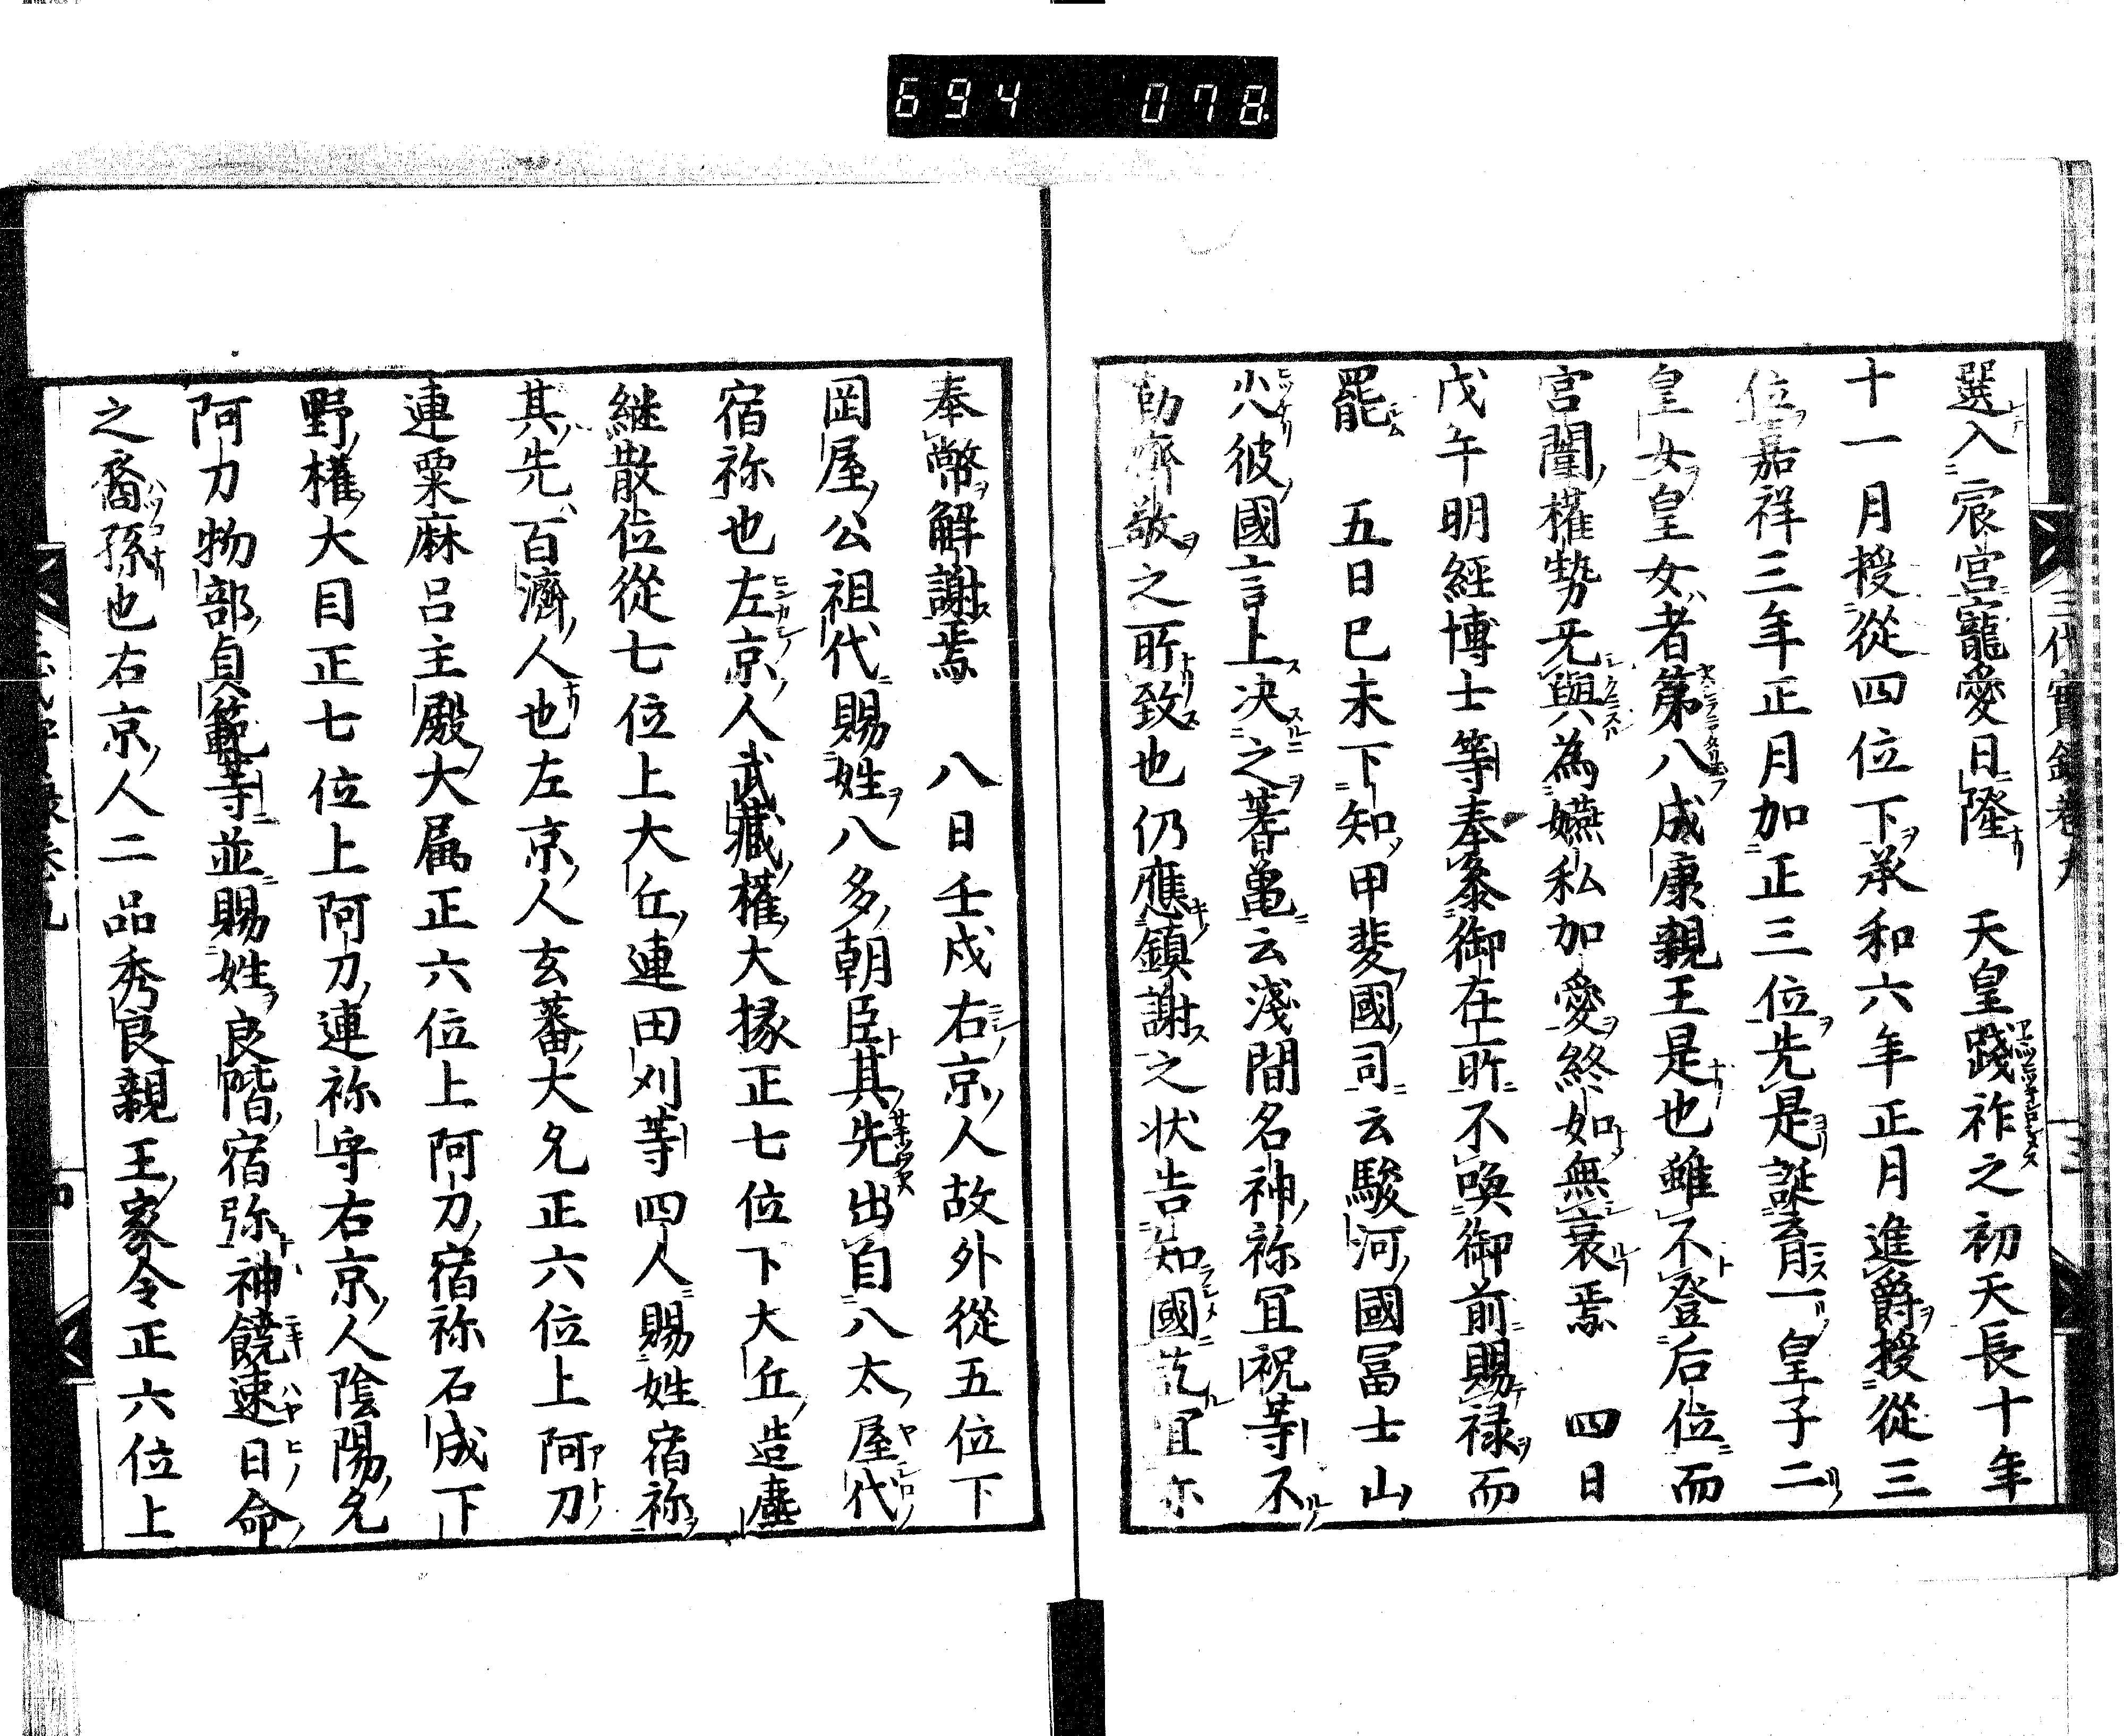 694 078
選入宸宮寵愛日隆　天皇踐祚之初天長十年
十一月授從四位下承和六年正月進爵授從三
位嘉祥三年正月加正三位先是誕育一皇子二
皇女皇女者第八成康親王是也雖不登后位而
宮闈權勢无與為嬿私加愛終如無衰焉　四日
戊午明經博士等奉參御在所不喚御前賜禄而
罷　五日巳未下知甲斐國司云駿河國冨士山
火彼國言上决之蓍亀云淺間名神祢冝祝等不
勤齋敬之所致也仍應鎮謝之状告知國訖冝亦
奉幣解謝焉　八日壬戍右京人故外從五位下
岡屋公祖代賜姓八多朝臣其先出自八太屋代
宿祢也左京人武藏權大掾正七位下大丘造塵
継散位從七位上大丘連田刈等四人賜姓宿祢
其先百濟人也左京人玄蕃大允正六位上阿刀
連粟麻呂主殿大属正六位上阿刀宿祢石成下
野權大目正七位上阿刀連祢守右京人陰陽允
阿刀物部貞範等並賜姓良階宿弥神饒速日命
之裔孫也右京人二品秀良親王家令正六位上